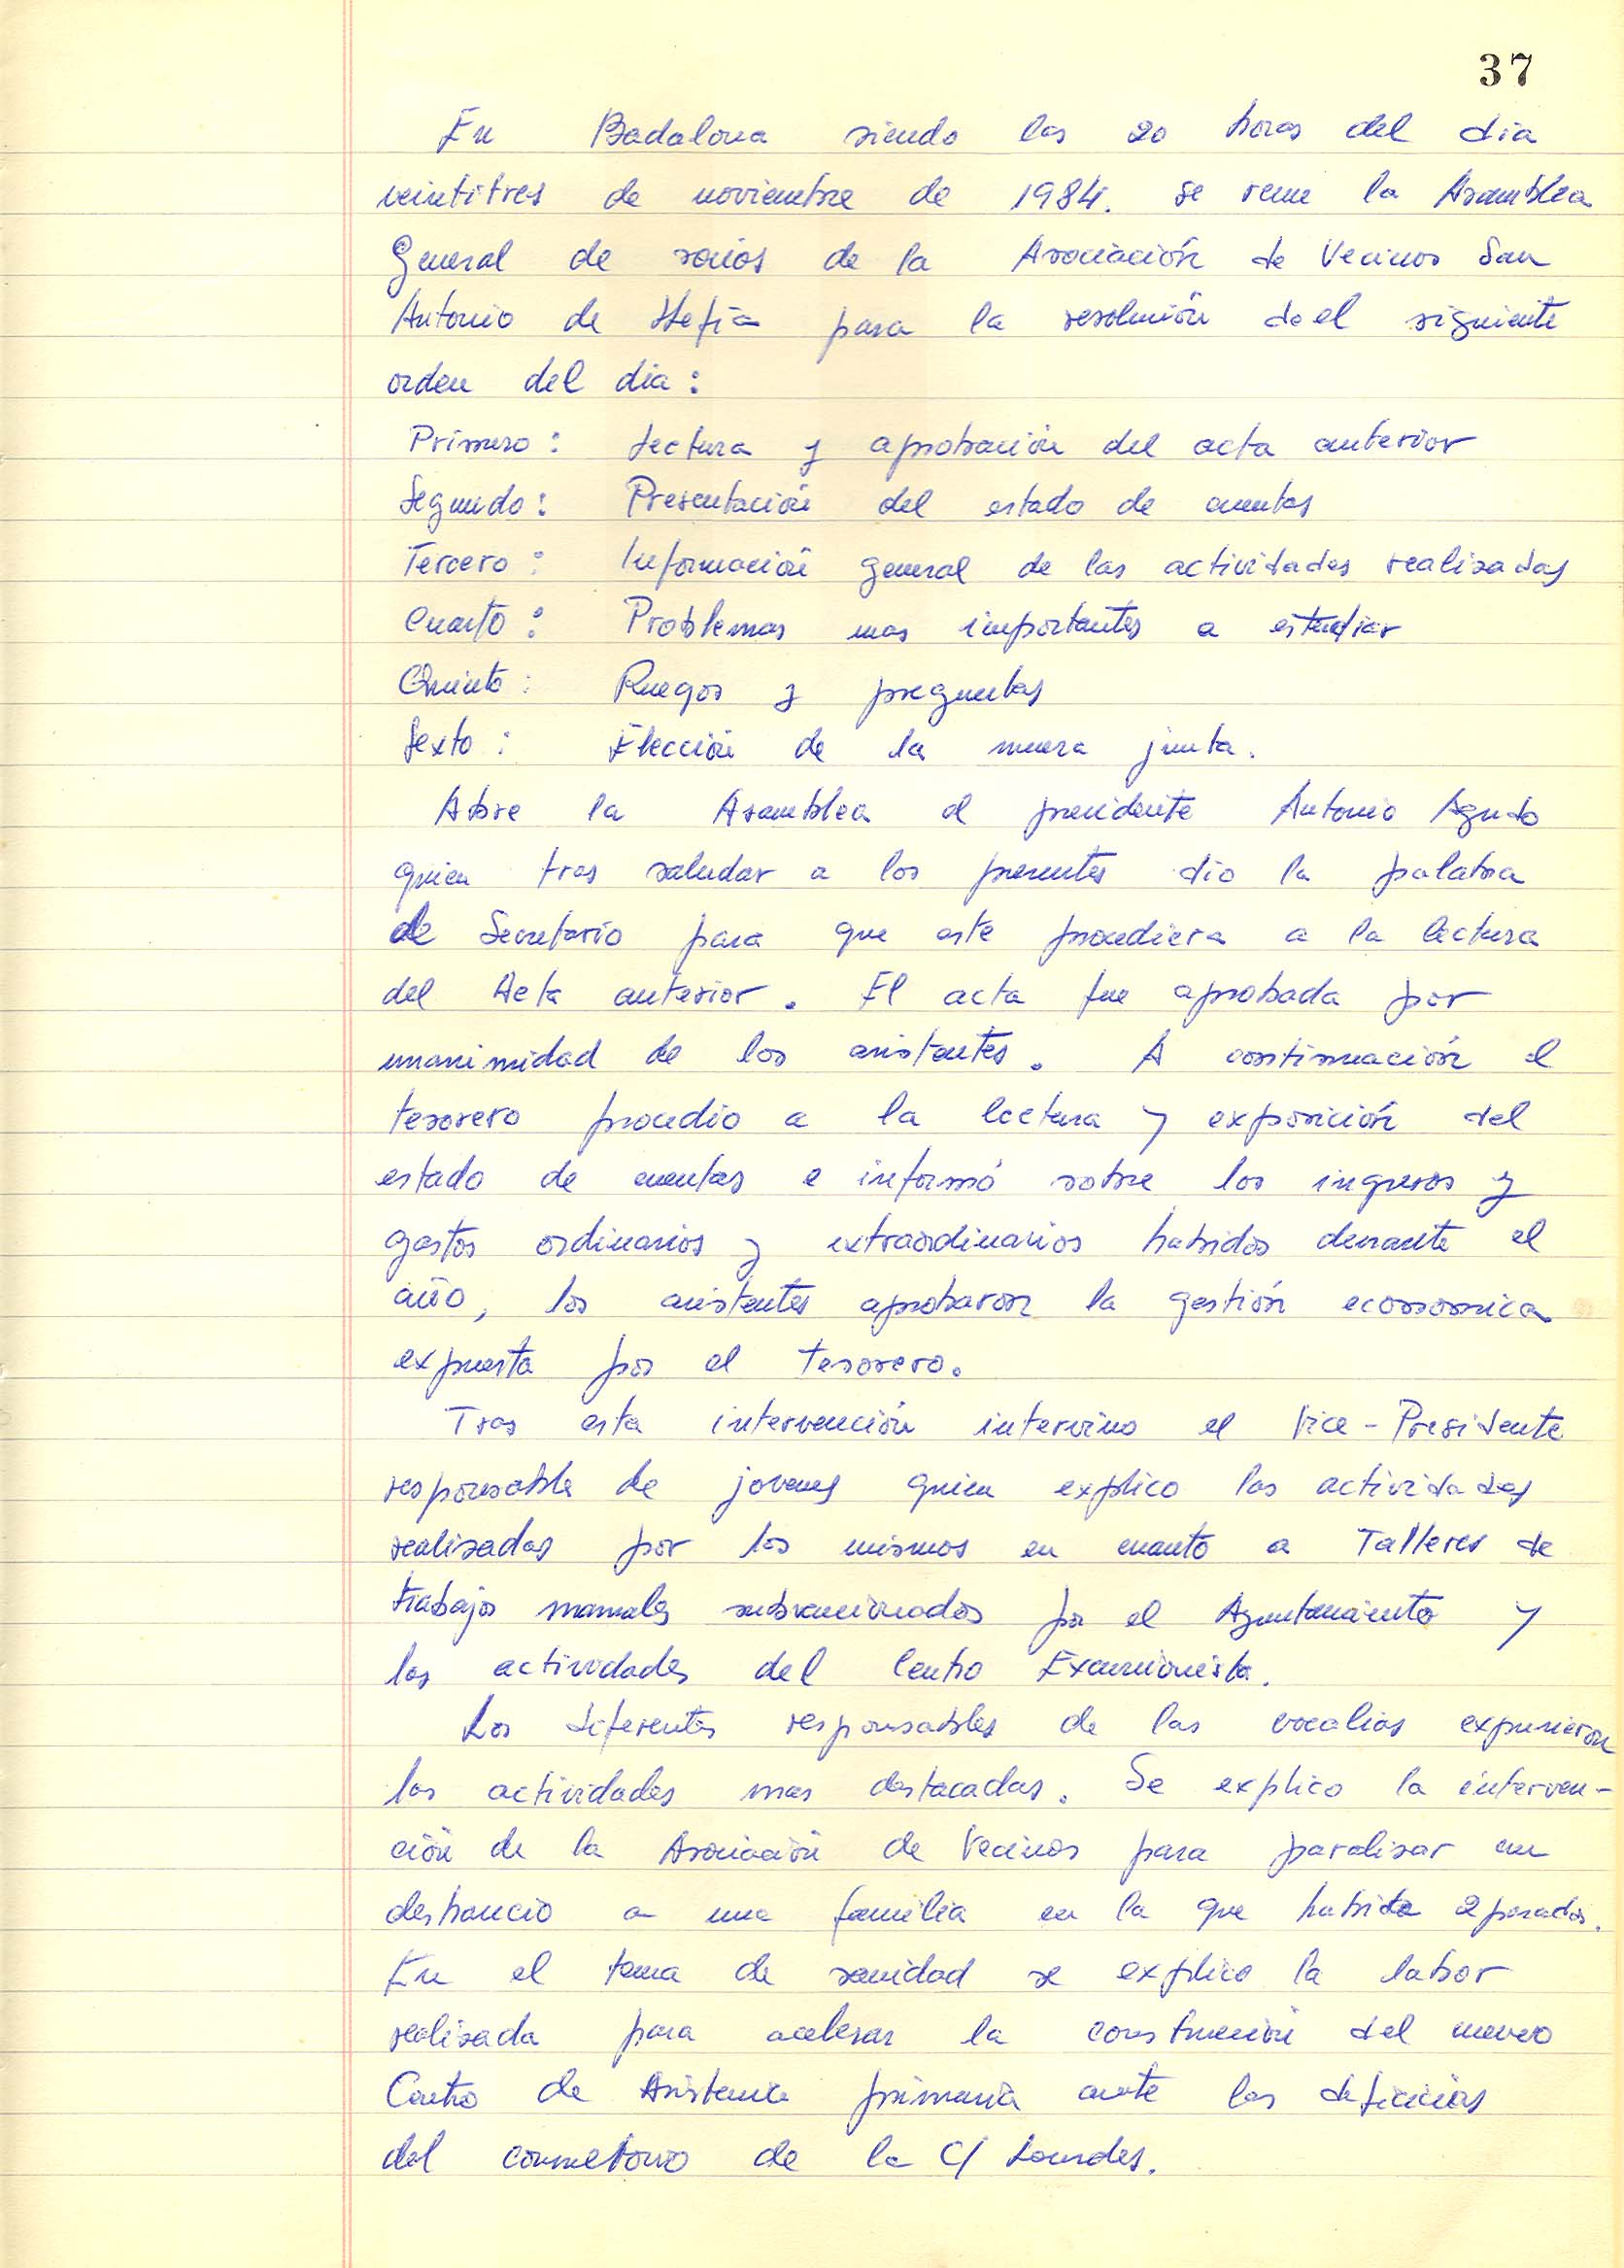 37
En Badalona siendo las 20 horas del dia
veintitres de noviembre de 1984. se reune la Asamblea
General de socios de la Asociación de Vecinos San
Antonio de Llefià para la resolución de el siguiente
orden del dia:
Primero: Lectura y aprobación del acta anterior
Segundo: Presentación del estado de cuentas
Tercero: Información general de las actividades realizadas
Cuarto: Problemas mas importantes a estudiar
Quinto: Ruegos y preguntas
Sexto: Elección de la nueva junta.
Abre la Asamblea el presidente Antonio Agudo
quien tras saludar a los presentes dio la palabra
al Secretario para que este procediera a la lectura
del Acta anterior. El acta fue aprobada por
unanimidad de los asistentes. A continuación el
tesorero procedio a la lectura y exposición del
estado de cuentas e informó sobre los ingresos y
gastos ordinarios y extraordinarios habidos durante el
año, los asistentes aprobaron la gestión economica
expuesta por el tesorero.
Tras esta intervención intervino el Vice-Presidente
responsable de jovenes quien explico las actividades
realizadas por los mismos en cuanto a Talleres de
trabajos manuales subvencionados por el Ayuntamiento y
las actividades del Centro Excursionista.
Los diferentes responsables de las vocalias expusieron
las actividades mas destacadas. Se explico la interven-
ción de la Asociación de Vecinos para paralizar un
deshaucio a una familia en la que habida 2 parados.
En el tema de sanidad se explico la labor
realizada para acelerar la construcción del nuevo
Centro de Asistencia primaria ante las deficicias
del consultorio de la C/ Lourdes.